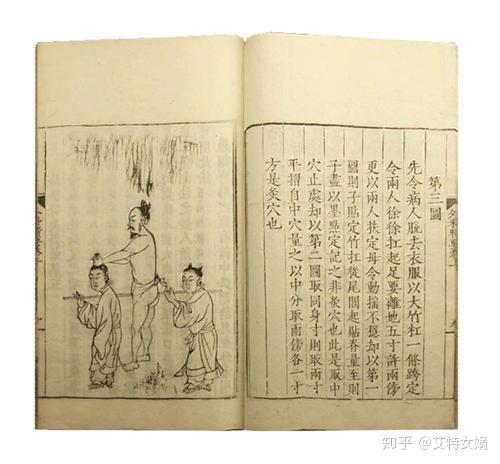 第三圖
先令病人脫去衣服以大竹杠一條跨定
令兩人徐徐扛起足要離地五寸許兩傍
更以兩人扶定毋令動搖不穩却以第一
圖則子貼定竹杠後尾閭起貼脊量至則
子盡以墨點定記之非灸穴也此是取中
穴止處却以第二圖取同身寸則取兩寸
平摺自中穴量之以中分取兩傍各一寸
方是灸穴也
知乎 @艾特女娲